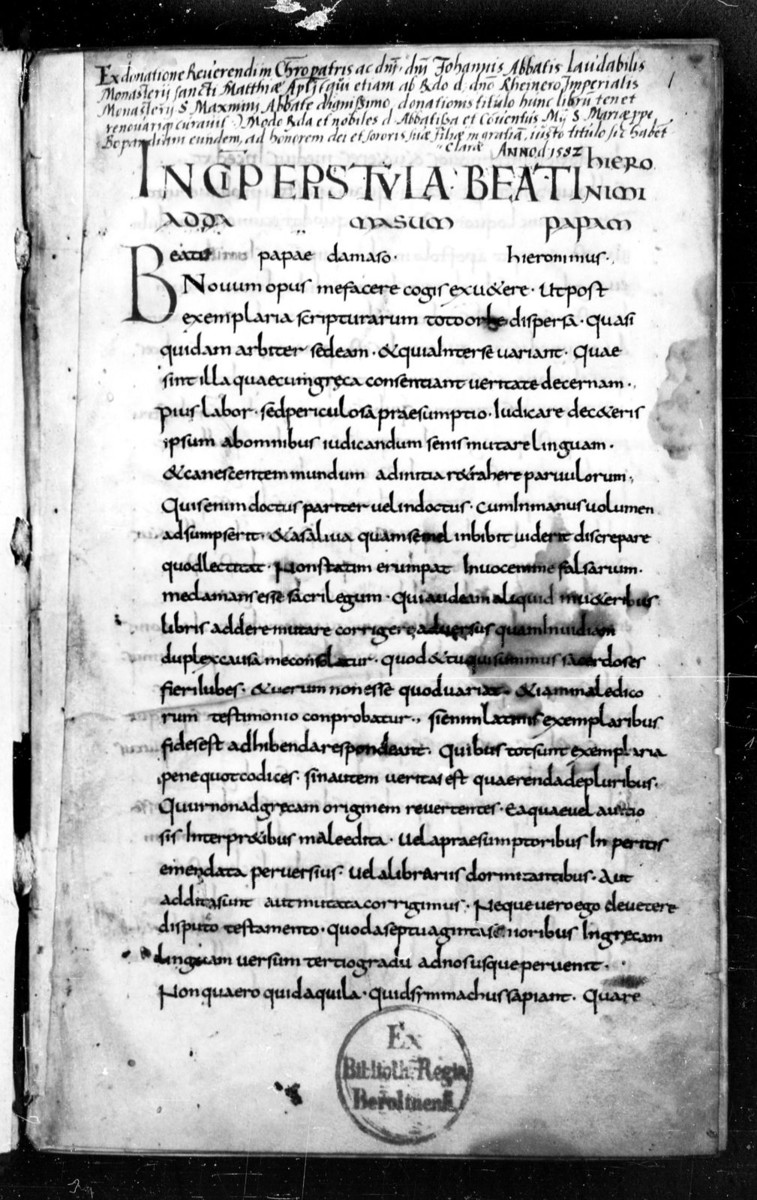 Ex donatione Reverendi in Chro patris ac dni, dni Johannis Abbatis laudabilis
Monasterij sancti Matthiæ Aplj, qui etiam ab R do d. dno Rheinero Imperialis
Monasterij S. Maximini Abbate dignissimo, donationis titulo hunc librū tenet
renovariq; curavit. Modo R da et nobiles d. Abbatissa et Cōventus Mij S. Mariæ ppe
Bopardiam eundem, ad honorem dei et sororis suæ filiæq; in gratiā, iusto titulo sic habēt
Claræ Anno d. 1582
1
INCIP EPISTVLA BEATI HIERO
NIMI
ADDA MASUM PAPAM
Beatis papae damaso. hieronimus.
Novum opus mefacere cogis exu&ere. Ut post
exemplaria scripturarum totoorbe dispersa. Quasi
quidam arbiter sedeam. &quiaInterse variant. Quae
sint illa quaecumgręca consentiant veritate decernam.
pius labor. sedpericulosa praesumptio. Iudicare dec&eris
ipsum abomnibus iudicandum senis mutare linguam.
&canescentem mundum adinitia r&rahere parvulorum,
Quisenim doctus pariter vel indoctus. cumInmanus volumen
adsumpserit. &asaliva quamsemel inbibit viderit discrepare
quodlectitat. Nonstatim erumpat Invocemme falsarum.
meclamansesse sacrilegum. Quiaudeam aliquid inu&eribus
libris addere mutare corrigere, adversus quamInvidiam
duplexcausa meconsolatur. quod&tuquisummus sacerdoses
fieriIubes. &verum nonesse quodvariat. &iammaledico
rum testimonio conprobatur., sienimlatinis exemplaribus
fidesest adhibendarespondeant. Quibus totsunt exemplaria
pene quotcodices. sinautem veritasest quaerendadepluribus.
Quurnonadgręcam originem revertentes. eaquaevel avitio
sis Interpr&ibus maleedita. vel apraesumptoribus In peritis
emendata perversius. vel alibrariis dormitantibus. Aut
additasunt autmutata corrigimus. Neque vero ego devetere
disputo testamento. quodaseptuagintasenioribus Ingręcam
linguam versum tertiogradu adnosusquepervenit.
Nonquaero quidaquila. quidsymmachussapiant. Quare
Ex
Biblioth. Regia
Berolinensi.